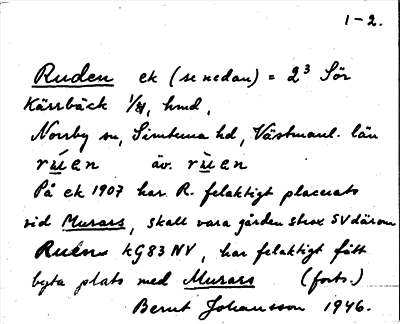 1-2.
Ruden ek (se nedan) = 2³ Sör
Kärrbäck 1/4, hmd,
Norrby sn, Simtuna hd, Västmanl. län
rúen äv. rùen
På ek 1907 har R. felaktigt placerats
vid Murars, skall vara gården strax SV därom
Ruens kG83 NV, har felaktigt fått
byta plats med Murars (forts.)
Bernt Johansson 1946.